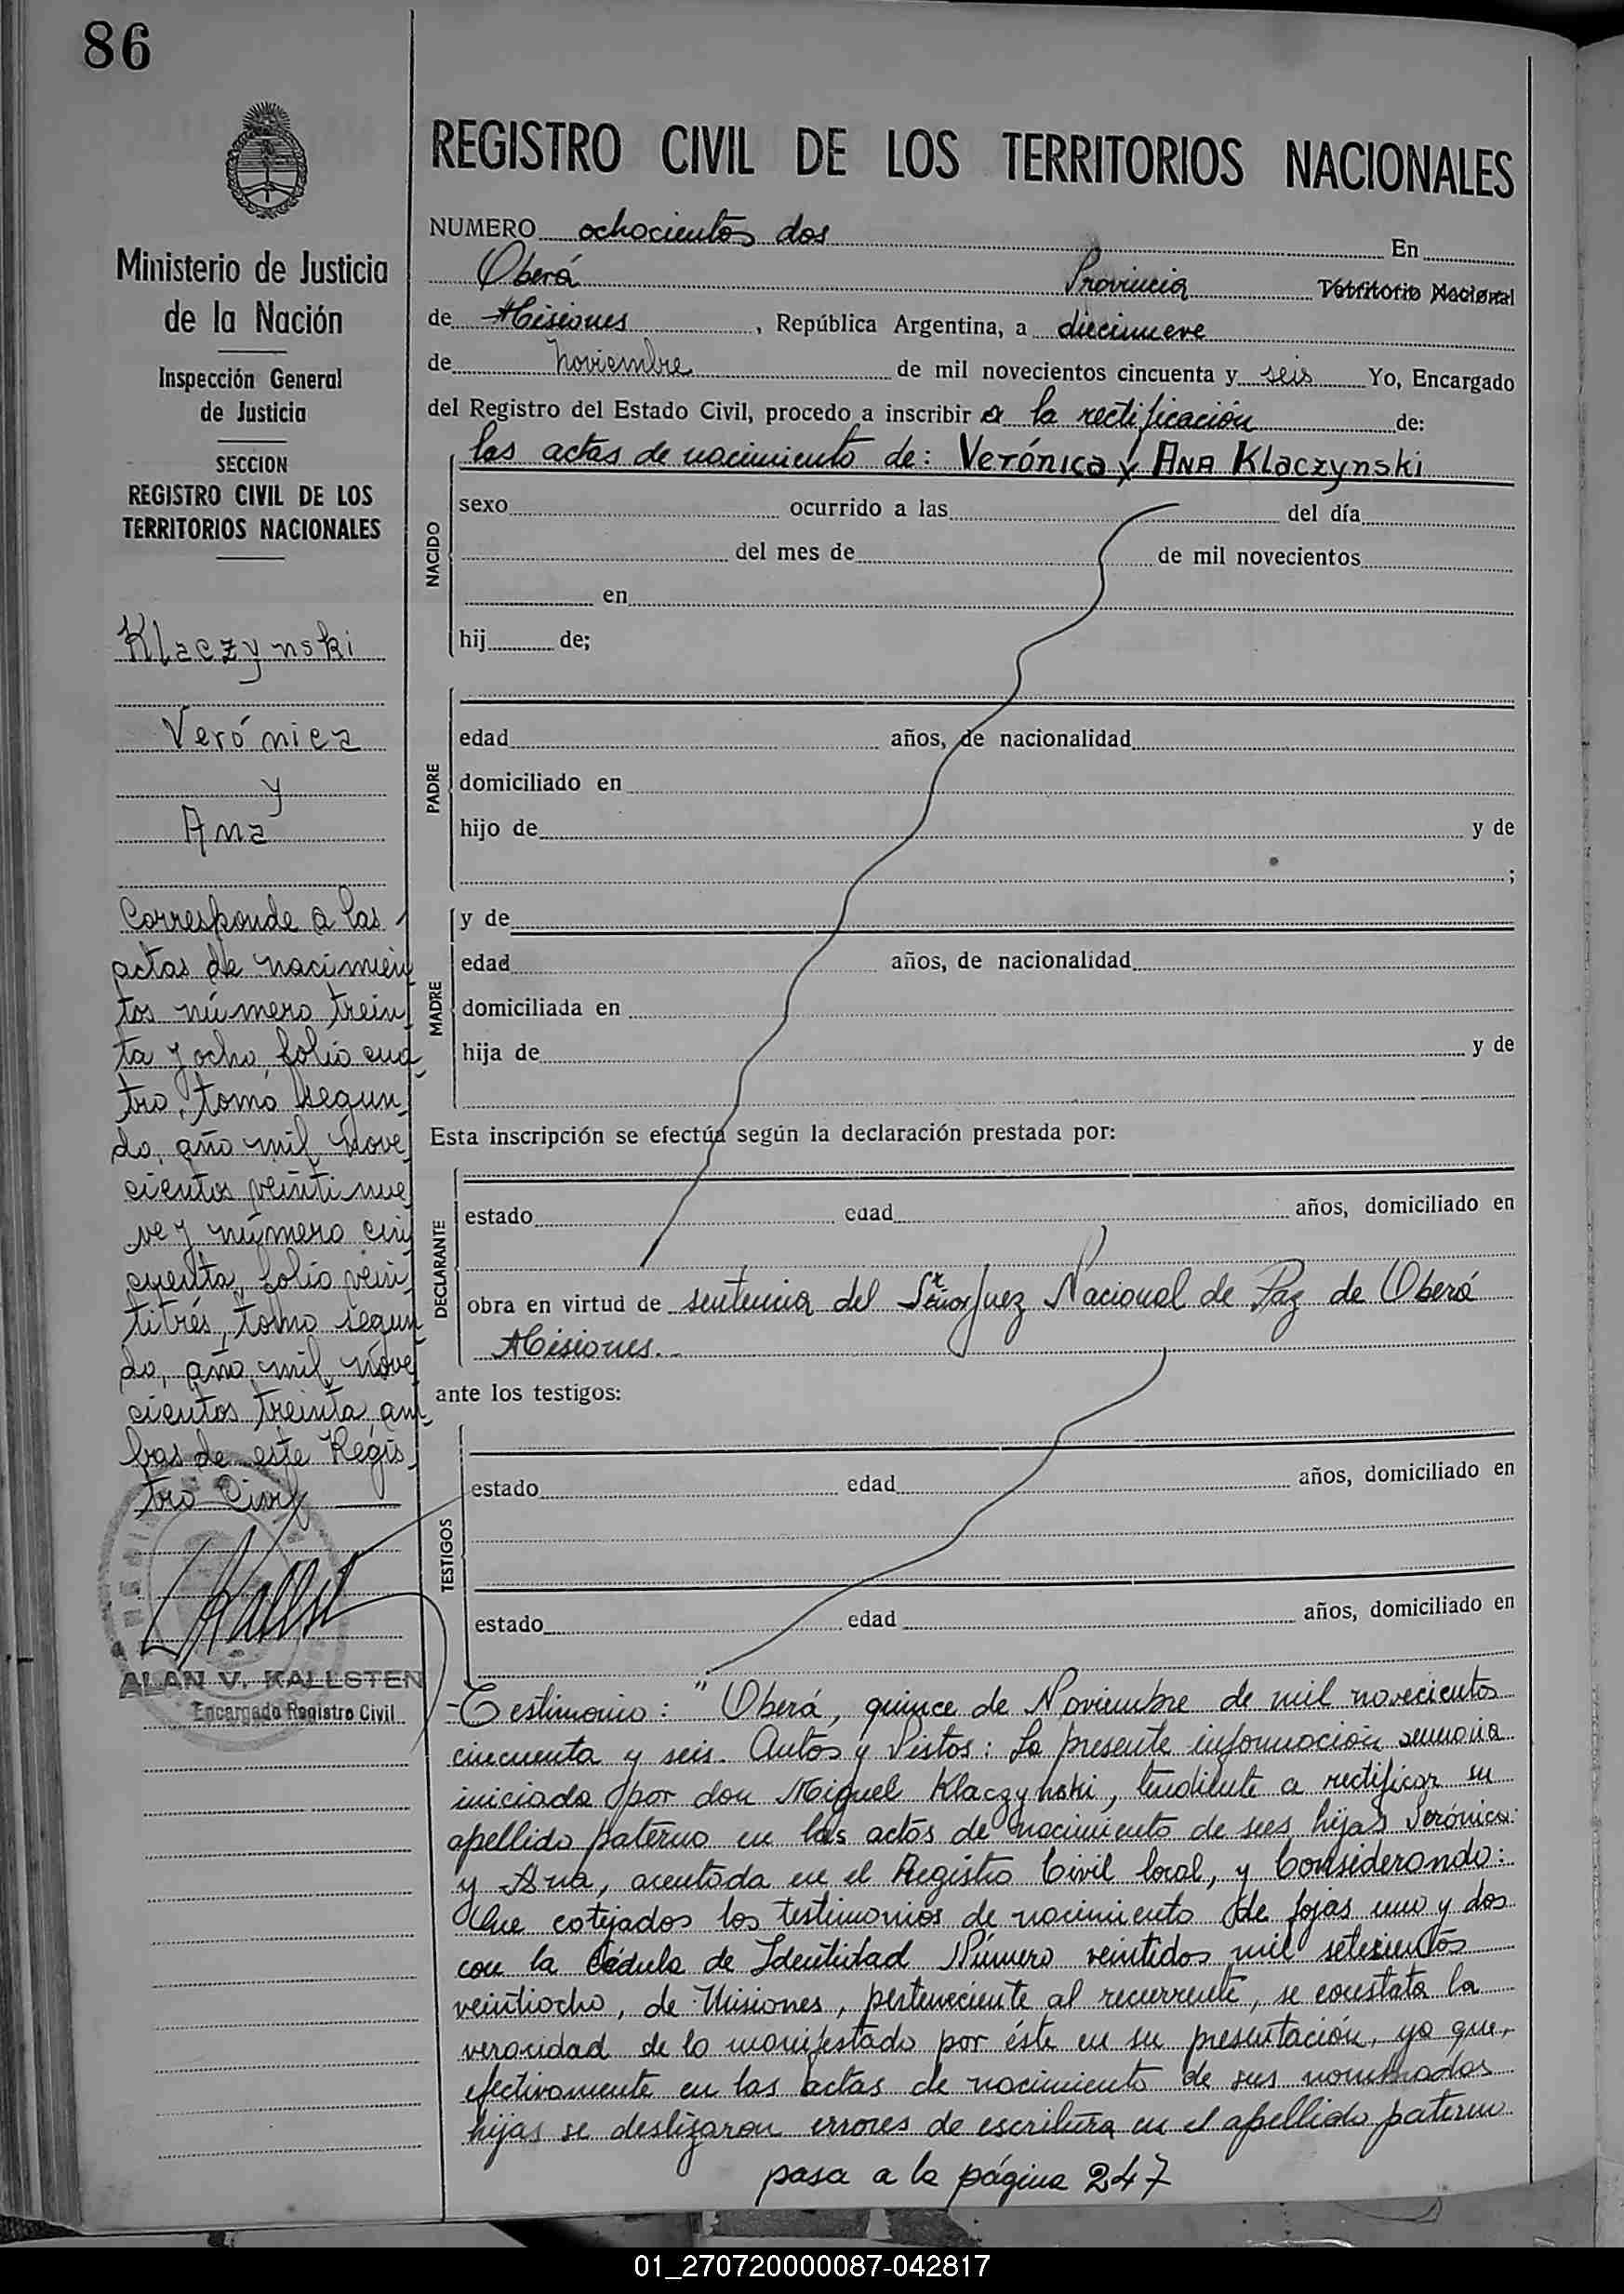 86
REGISTRO CIVIL DE LOS TERRITORIOS NACIONALES
Ministerio de Justicia
de la Nación
Inspección General
de Justicia
SECCION
REGISTRO CIVIL DE LOS
TERRITORIOS NACIONALES
Klaczynski
Verónica
y
Ana
Corresponde a las
actas de nacimien
tos número trein
ta y ocho, folio cua
tro, tomo segun
do, año mil nove
cientos veintinue
ve y número cin
cuenta, folio vein
titrés, tomo segun
do, año mil nove
cientos treinta, am
bas de este Regis
tro Civil
ALAN V. KALLSTEN
Encargado Registro Civil
NUMERO ochocientos dos En
Oberá Provincia Territorio Nacional
de Misiones, República Argentina, a diecinueve
de Noviembre de mil novecientos cincuenta y seis Yo, Encargado
del Registro del Estado Civil, procedo a inscribir a la rectificación de:
las actas de nacimiento de: Verónica y ANA Klaczynski
NACIDO
sexo ocurrido a las del día
del mes de de mil novecientos
en
hij de;
PADRE
edad años, de nacionalidad
domiciliado en
hijo de y de
;
MADRE
y de
edad años, de nacionalidad
domiciliada en
hija de y de
Esta inscripción se efectúa según la declaración prestada por:
DECLARANTE
estado edad años, domiciliado en
obra en virtud de sentencia del Señor Juez Nacional de Paz de Oberá
Misiones.-
ante los testigos:
TESTIGOS
estado edad años, domiciliado en
estado edad años, domiciliado en
Testimonio: "Oberá, quince de Noviembre de mil novecientos
cincuenta y seis. Autos y Vistos: La presente información sumaria
iniciada por don Miguel Klaczynski, tendiente a rectificar su
apellido paterno en las actas de nacimiento de sus hijas Verónica
y Ana, asentada en el Registro Civil local, y Considerando:
Que cotejados los testimonios de nacimiento de fojas uno y dos
con la Cédula de Identidad Número veintidos mil setecientos
veintiocho, de Misiones, perteneciente al recurrente, se constata la
veracidad de lo manifestado por éste en su presentación, ya que,
efectivamente en las actas de nacimiento de sus nombradas
hijas se deslizaron errores de escritura en el apellido paterno
pasa a la página 247
01_270720000087-042817